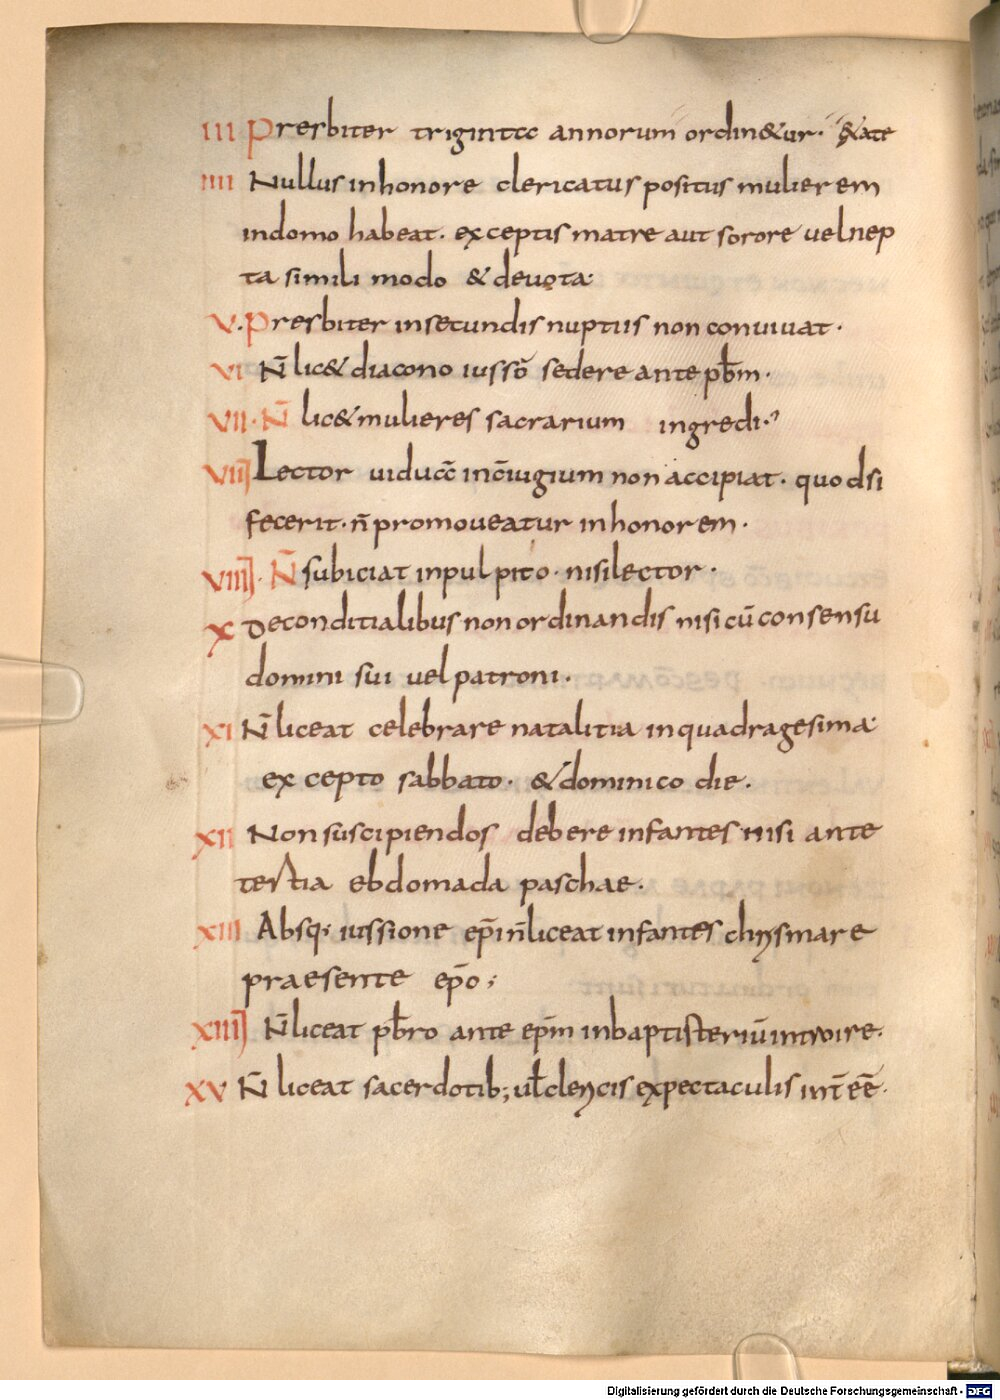 III Presbiter triginta annorum ordin&ur· &ate
IIII Nullus inhonore clericatus positus mulierem
indomo habeat· exceptis matre aut sorore uel nep
ta simili modo & deuota·
V· Presbiter insecundis nuptiis non conuiuat·
VI N̄ lic& diacono iussō sedere ante pb̄m·
VII· N̄ lic& mulieres sacrarium ingredi·
VIII Lector uidua incōiugium non accipiat· quodsi
fecerit· n̄ promoueatur inhonorem·
VIIII· N̄ subiciat inpulpito· nisilector·
X Deconditialibus non ordinandis nisi cū consensu
domini sui uel patroni·
XI N̄ liceat celebrare natalitia inquadragesima·
excepto sabbato· & dominico die·
XII Non suscipiendos debere infantes nisi ante
tertia ebdomada paschae·
XIII Absq; iussione ep̄i n̄ liceat infantes chrysmare
praesente ep̄o;
XIIII N̄ liceat pb̄ro ante ep̄m inbaptisteriū introire·
XV N̄ liceat sacerdotib; ul̄ clericis expectaculis int̄ eē·
Digitalisierung gefördert durch die Deutsche Forschungsgemeinschaft - DFG